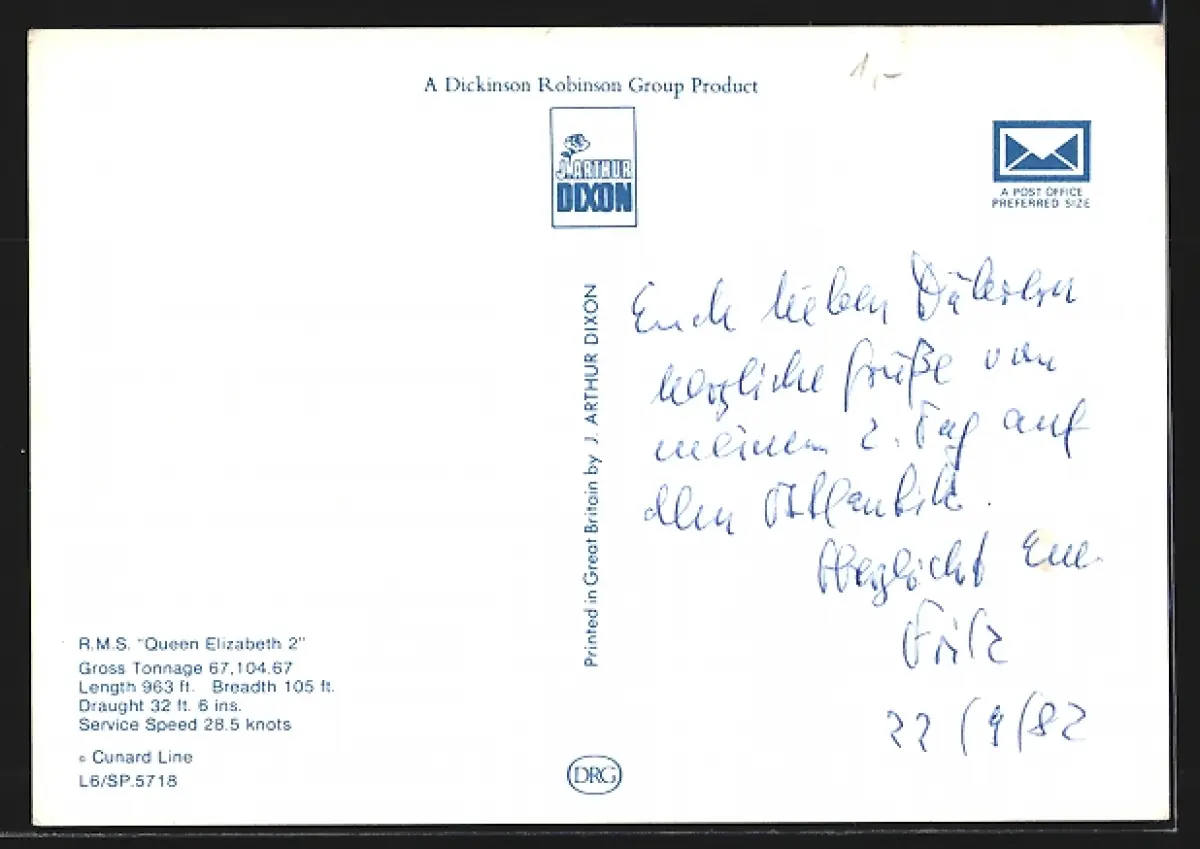 1,-
A Dickinson Robinson Group Product
J. ARTHUR
DIXON
A POST OFFICE
PREFERRED SIZE
Printed in Great Britain by J. ARTHUR DIXON
Euch lieben
herzliche Grüße von
meinem 2. Tag auf
dem Atlantik.
Herzlichst Euer
Fritz
22/9/82
R.M.S. "Queen Elizabeth 2"
Gross Tonnage 67,104.67
Length 963 ft. Breadth 105 ft.
Draught 32 ft. 6 ins.
Service Speed 28.5 knots
© Cunard Line
L6/SP.5718
DRG